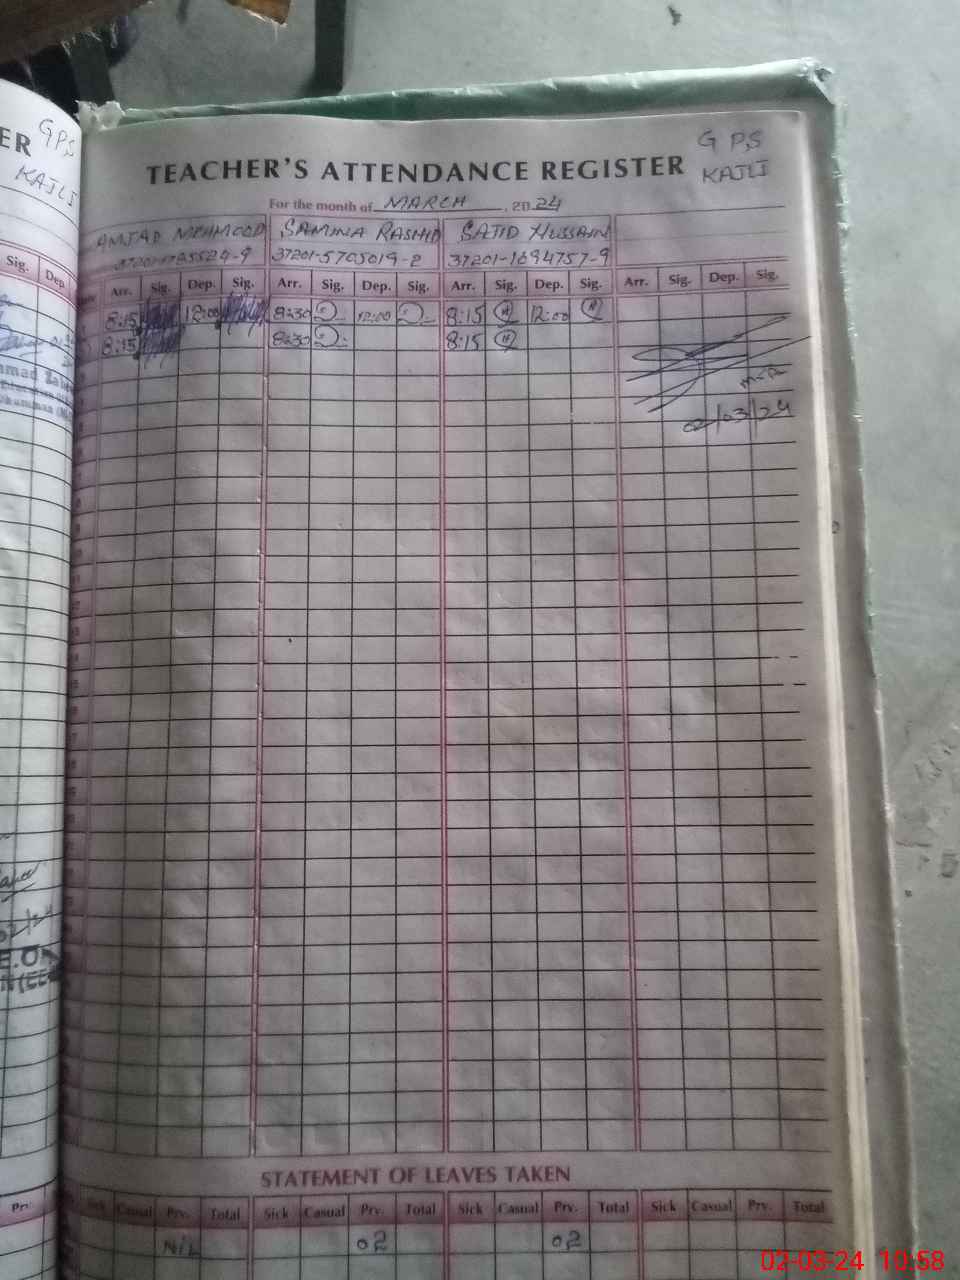 ER
GPS
KAJLI
TEACHER'S ATTENDANCE REGISTER
G P,S
KAJLI
For the month of MARCH , 2024
AMJAD MEHMOOD SAMINA RASHID SAJID HUSSAIN
37201-5705019-2 37201-1694757-9
Sig. Dep.
Arr. Sig. Dep. Sig. Arr. Sig. Dep. Sig. Arr. Sig. Dep. Sig. Arr. Sig. Dep. Sig.
8:15 12:00 8:30 12:00 8:15 12:00
8:15 8:30 8:15
02/03/24
STATEMENT OF LEAVES TAKEN
Prv.
Sick Casual Prv. Total Sick Casual Prv. Total Sick Casual Prv. Total Sick Casual Prv. Total
NIL 02 02
02-03-24 10:58